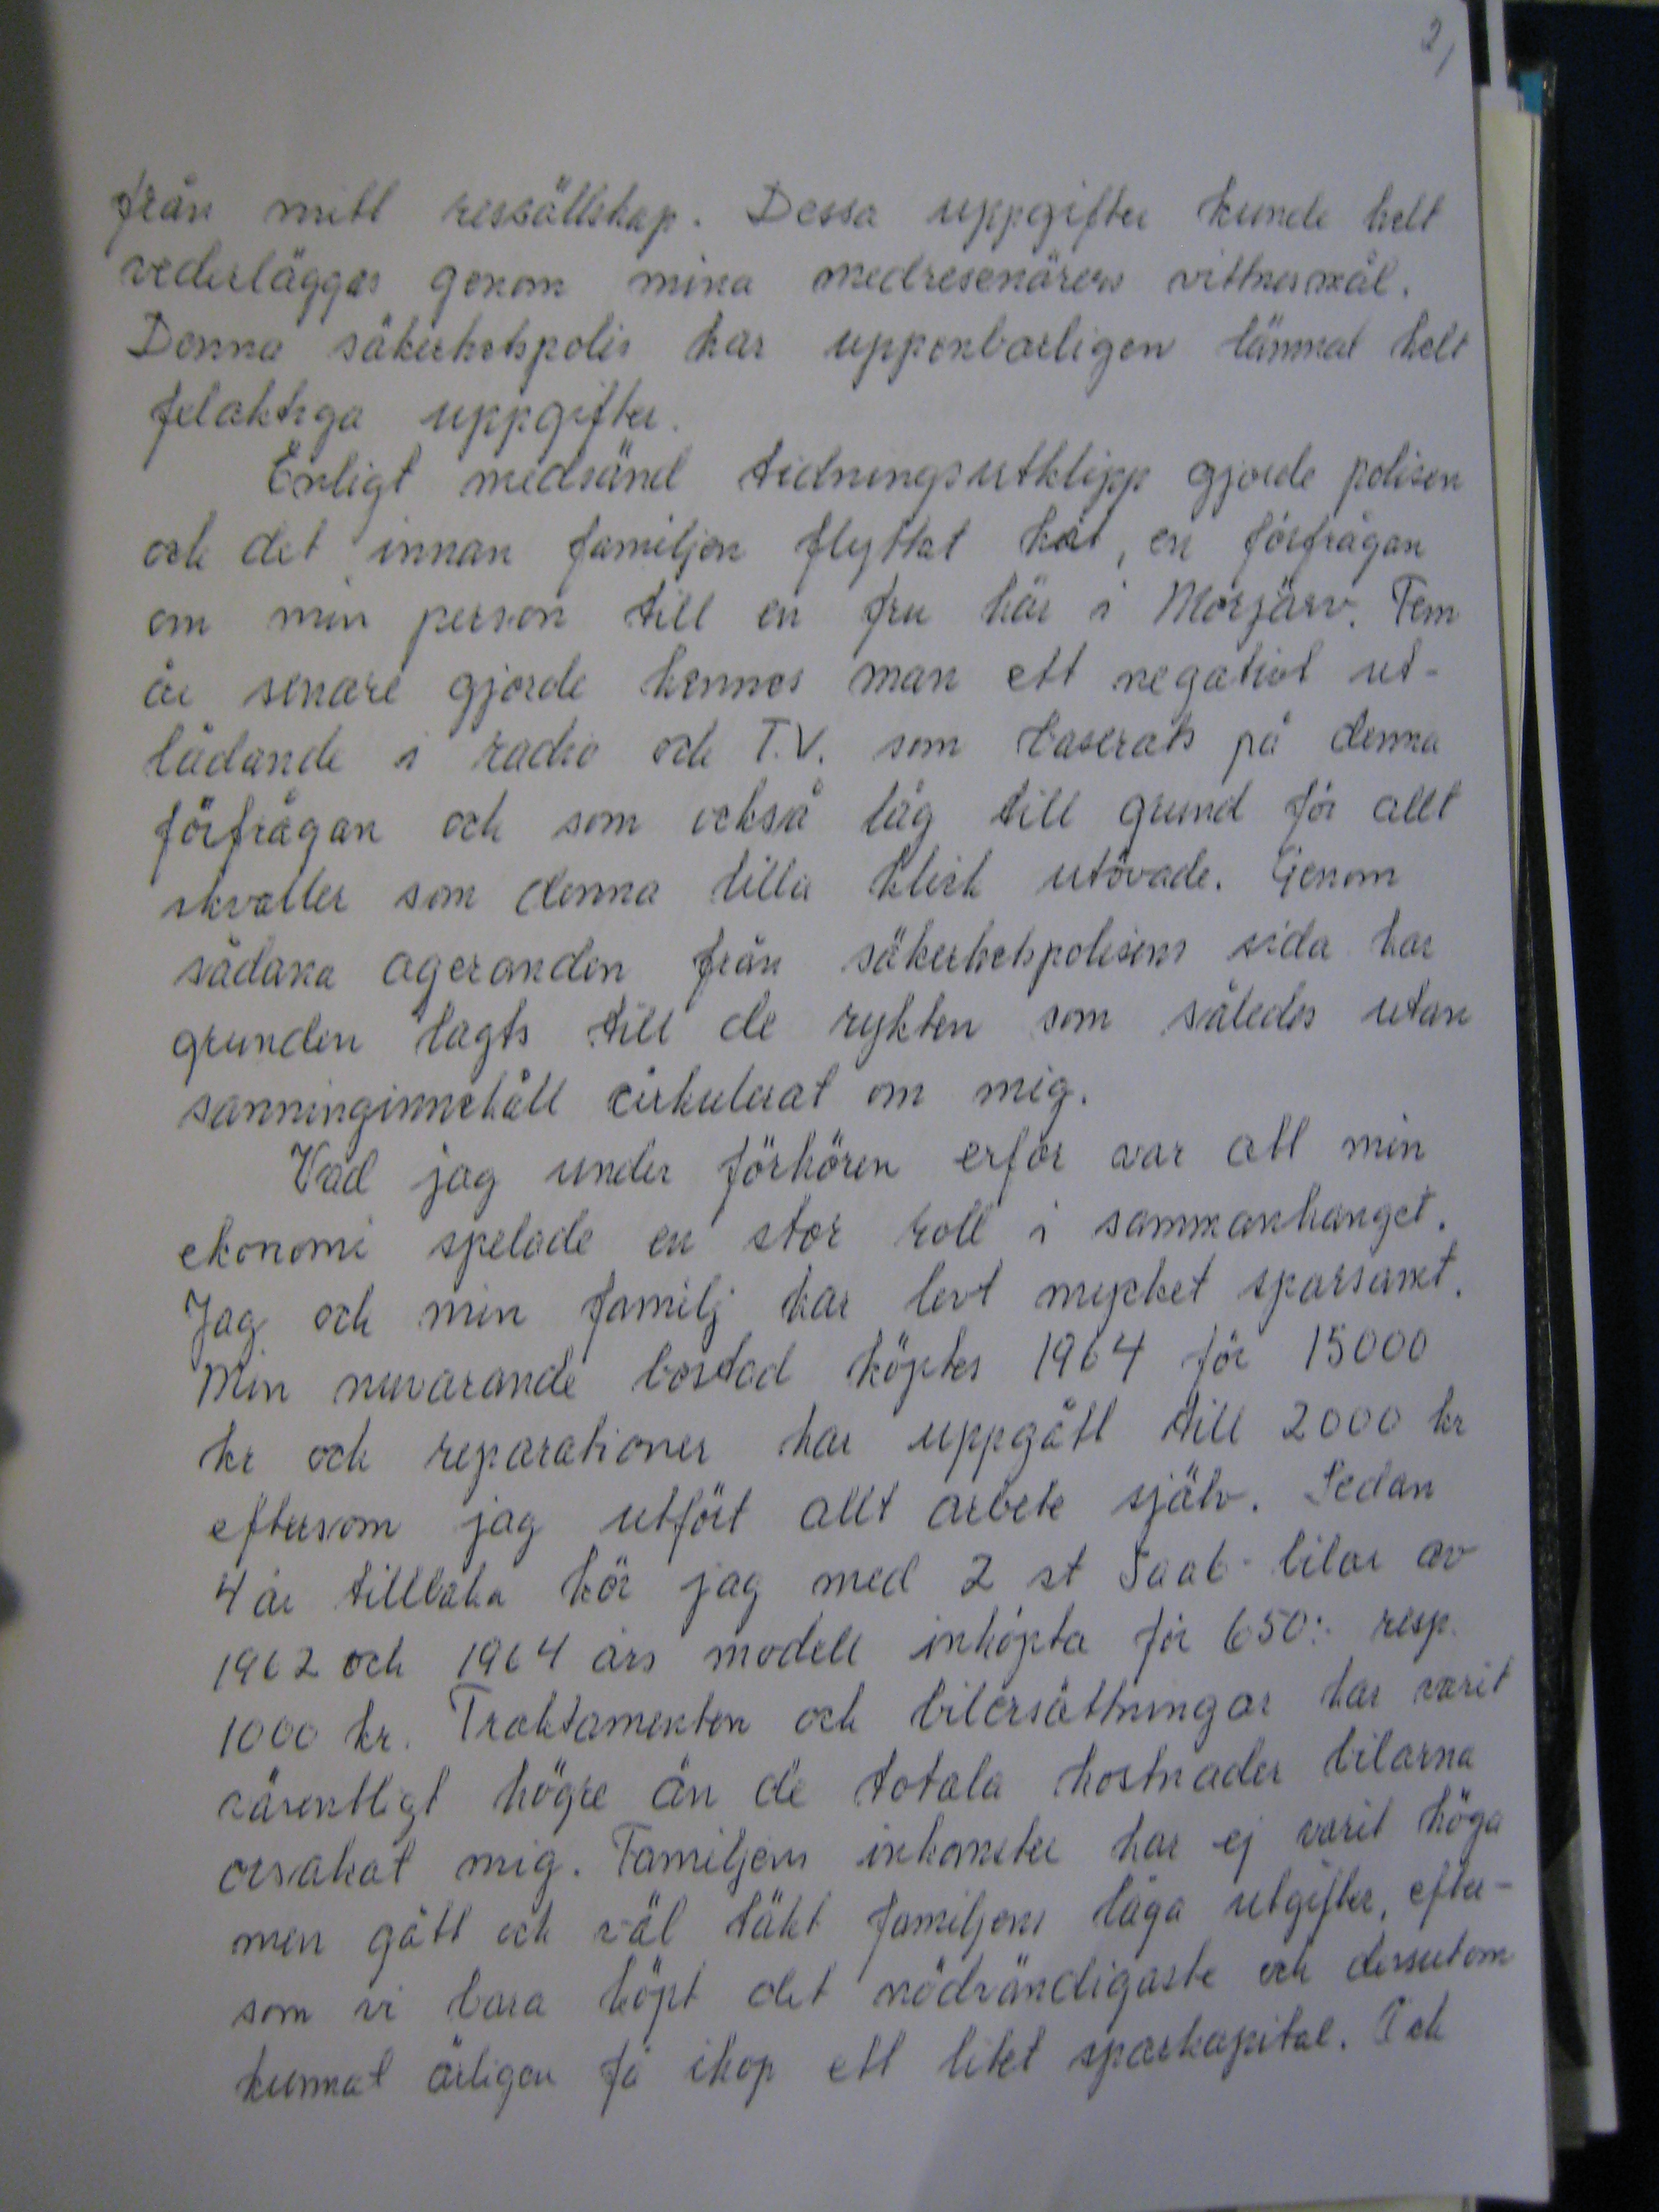 2,
från mitt ressällskap. Dessa uppgifter kunde helt
vederläggas genom mina medresenärers vittnesmål.
Denna säkerhetspolis har uppenbarligen lämnat helt
felaktiga uppgifter.
Enligt medsänd tidningsutklipp gjorde polisen
och det innan familjen flyttat hit, en förfrågan
om min person till en fru här i Morjärv. Fem
år senare gjorde hennes man ett negativt ut-
låtande i radio och T.V. som baserats på denna
förfrågan och som också låg till grund för allt
skvaller som denna lilla klick utövade. Genom
sådana ageranden från säkerhetspolisens sida har
grunden lagts till de rykten som således utan
sanninginnehåll cirkulerat om mig.
Vad jag under förhören erfor var att min
ekonomi spelade en stor roll i sammanhanget.
Jag och min familj har levt mycket sparsamt.
Min nuvarande bostad köptes 1964 för 15000
kr och reparationer har uppgått till 2000 kr
eftersom jag utfört allt arbete själv. Sedan
4 år tillbaka kör jag med 2 st Saab-bilar av
1962 och 1964 års modell inköpta för 650:- resp.
1000 kr. Traktamenten och bilersättningar har varit
väsentligt högre än de totala kostnader bilarna
orsakat mig. Familjens inkomster har ej varit höga
men gått och väl täkt familjens låga utgifter, efter-
som vi bara köpt det nödvändigaste och dessutom
kunnat årligen få ihop ett litet sparkapital. Och